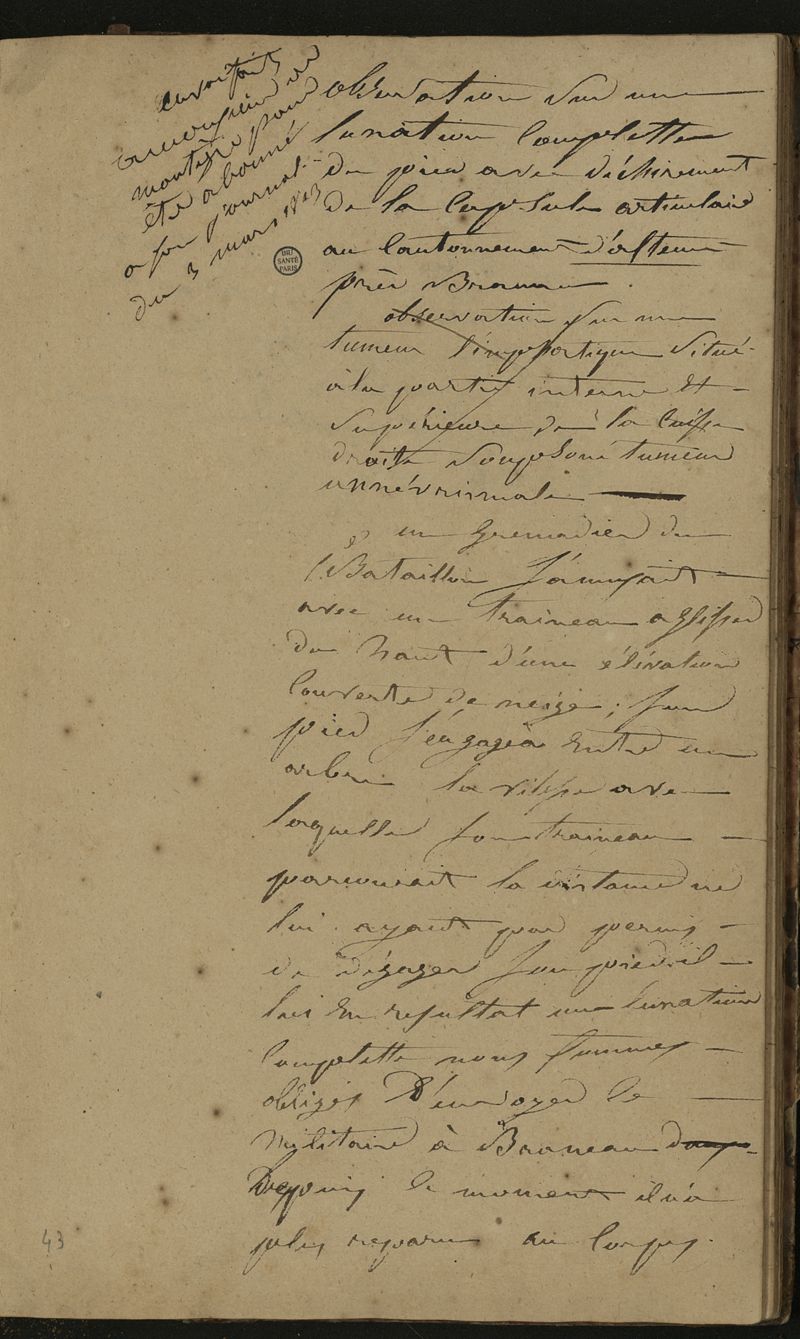 envoi fait
à monsieur de
montègre pour
être abonné
a son journal
du 3 mars 1813
BIU
SANTÉ
PARIS
observation sur une
luxation complette
du pied avec déchirement
de la capsule articulaire
au cantonnement d'alteme
près Braunau.
observation sur une
tumeur limphatique situé
à la partie interne et
supérieure de la cuisse
droite soupsoné tumeur
annévrismale
un grenadier du
Bataillon s'amusait
avec un traineau a glisser
du haut d'une élévation
couverte de neige; son
pied s'engagea entre un
arbre la vitesse avec
laquelle son traineau
parcourait la distance ne
lui ayant pas permis
de dégager son pied il
lui en resultat une luxation
complette nous fumes
obligés d'envoyer le
militaire à Braneau
Depuis le moment il n'a
plus reparu au corps.
43